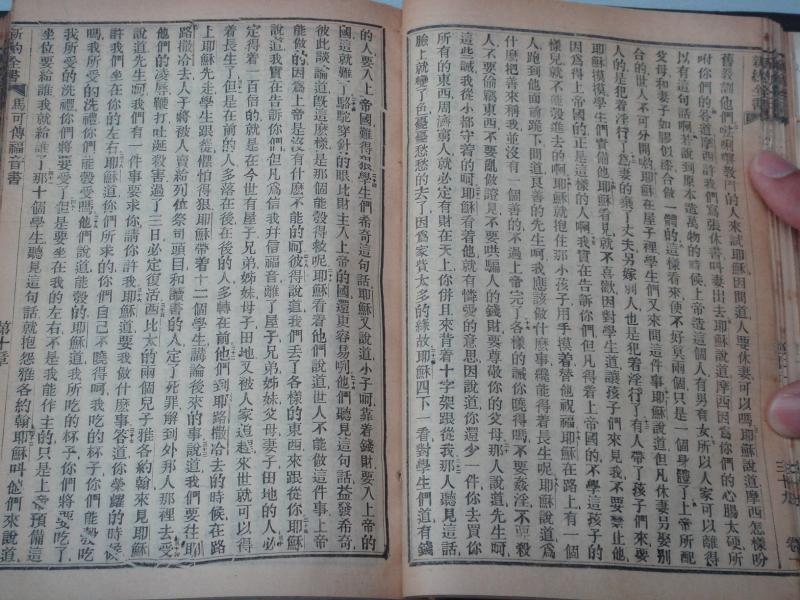 舊發訓他們 教門的人來試耶穌因問道人要休妻可以嗎耶穌說道摩西怎樣吩
咐你們的各道摩西許我們寫張休書叫妻出去耶穌說道摩西因爲你們的心腸太硬所
以有這句話啊若說到原本造萬物的時候上帝造這個人有男有女所以人家可以離得
父母和妻子如膠似漆合做一體的這樣看來便不好算兩個只是一個身體了上帝所配
合的世人不可分開喲耶穌在屋子裡學生們又來問這件事耶穌說道但凡休妻另娶別
人的是犯着淫行了爲妻的棄了丈夫另嫁別人也是犯着淫行了有人帶了孩子們來要
耶穌摸摸學生們責備他耶穌看見就不喜歡因對學生道讓孩子們來見我不要禁止他
因爲得上帝國的正是這樣的人啊我實在告訴你們但凡得着上帝國的不學這孩子的
樣兒就不能彀進去的啊耶穌就抱住那小孩子用手摸着替他祝福耶穌在路上有一個
人跑到他面前跪下問道良善的先生呵我應該做什麼事纔能得着長生呢耶穌道你爲
什麼把善來稱我並沒有一個善的不過上帝完了各樣的誡你曉得嗎不要姦淫不要殺
人不要偷竊東西不要亂做證見不要哄騙人的錢財要尊敬你的父母那人說道先生呵
這些誡我從小都守着的呵耶穌看着他就有憐愛的意思因說道你還少一件你去買你
所有的東西周濟窮人就必定有財在天上你併且來背着十字架跟從我那人聽見這話
臉上就變了色憂憂愁愁的去了因爲家貲太多的緣故耶穌四下一看對學生們道有錢
的人要入上帝國難得狠學生們希奇這句話耶穌又說道小子呵靠着錢財要入上帝的
國這就難了駱駝穿針的眼比財主入上帝的國還更容易咧他們聽見這話益發希奇
彼此談論道既這麼樣是那個能彀得救呢耶穌看着他們說道世人不能做這件事上帝
定能的因爲上帝是沒有什麼不能的呵彼得說道我們丢了各樣的東西來跟從你耶穌
說道我實在告訴你們但凡爲信我幷信福音離了屋子兄弟姊妹父母妻子田地的人必
定得着一百倍的就是在今世有屋子兄弟姊妹母子田地又被人家追趕來世就可以得
着長生了但是在前的人多落在後在後的人多轉在前他們到耶路撒冷去的時候在路
上耶穌先走學生跟從懼怕得狠耶穌帶着十二個學生講論後來的事說道我們要往耶
路撒冷去人子將被人賣給列位祭司頭目和讀書的人定了死罪解到外邦人那裡去受
他們的凌辱鞭打吐涎殺害過了三日必定復活西比太的兩個兒子雅各約翰來見耶穌
說道先生呵我們有一件事要求你請你許我耶穌道要我做什麼事答道你榮耀的時候
許我們坐在你的左右耶穌道你們所求的你們自己不曉得呵我吃的杯子你們能彀吃
嗎我所受的洗禮你們能彀受嗎他們說道能彀的耶穌道我所吃的杯子你們將要吃了
我所受的洗禮你們將要受了但是要坐在我的左右不是我能作主的只是上帝預備這
坐位要給誰我就給誰了那十個學生聽見這句話就抱怨雅各約翰耶穌叫他們來說道
新約全書 馬可傳福音書 第十章